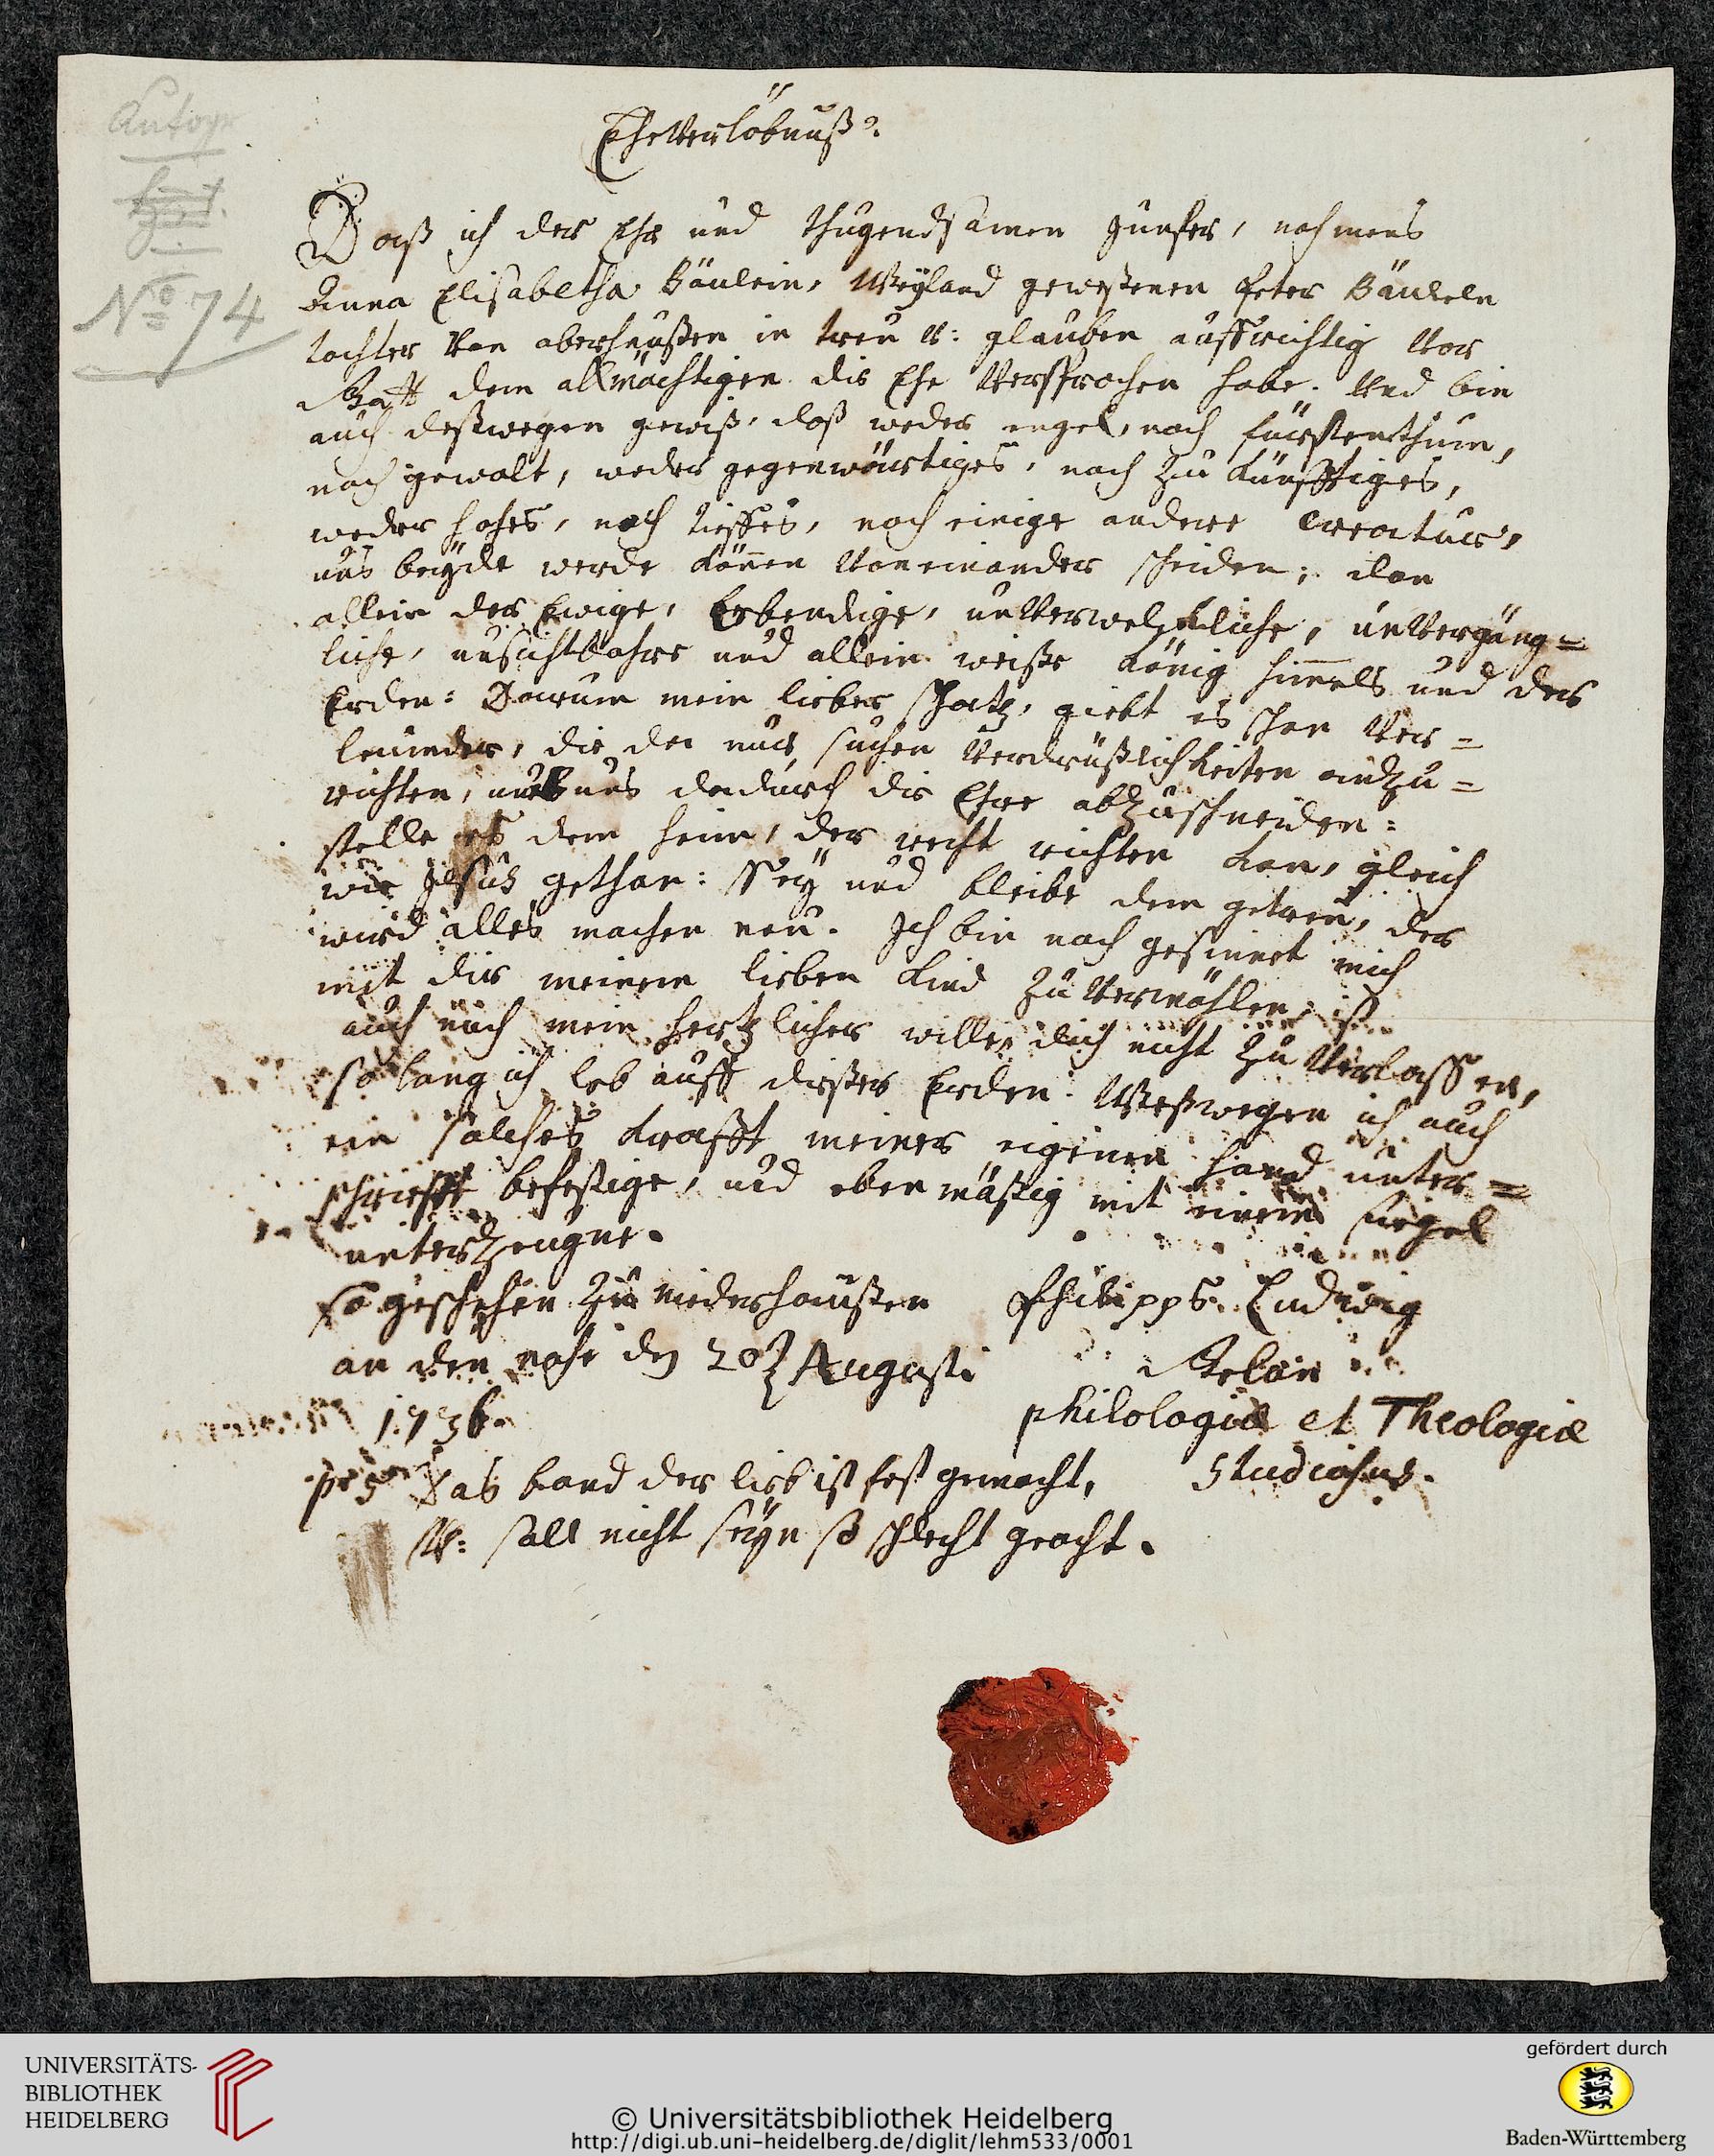 Autogr
N° 74
Eheverlöbnuß.
Daß ich der Ehr und thugendsamen Junfer, nahmens
Anna Elisabetha Bäulein, Weyland geweßenen Peter Bäulein
tochter von oberhaußen in treu u: glauben auffrichtig vor
Gott dem allmächtigen die Ehe versprochen habe. Und bin
auch deßwegen gewiß, daß weder engel, noch fürstenthum,
noch gewalt, weder gegenwärtiges, noch zu künfftiges,
weder hohes, noch tieffes, noch einige andere Creatur,
uns beyde werde können voneinander scheiden; dan
allein der Ewige, lebendige, unverwelckliche, unvergäng=
liche, unsichtbahre und allein weiße König himels und der
Erden: Darum mein lieber schatz, giebt es schon ver=
leumder, die da nur suchen verdrüßlichkeiten anzu=
richten, uns dadurch die Ehre abzuschneiden:
stelle es dem heim, der recht richten kan, gleich
wie Jesus gethan: Sey und bleibe dem getreu, der
wird alles machen neu. Ich bin noch gesinnet mich
mit dir meinem lieben Kind zu vermählen; ist
auch noch mein hertzlicher willen dich nicht zu verlassen,
so lang ich leb auff dießer Erden: Weßwegen ich auch
ein solches krafft meiner eigenen hand unter=
schriefft befestige, und eben mäßig mit einem siegel
unterzeugne.
so geschehen zu niederhaußen
an der nohe den 20 Augusti
1736.
Philipps Ludwig
philologiæ et Theologiæ
studiosus.
ps Das band der lieb ist fest gemacht,
U: soll nicht seyn so schlecht geacht.
UNIVERSITÄTS-
BIBLIOTHEK
HEIDELBERG
© Universitätsbibliothek Heidelberg
http://digi.ub.uni-heidelberg.de/diglit/lehm533/0001
gefördert durch
Baden-Württemberg